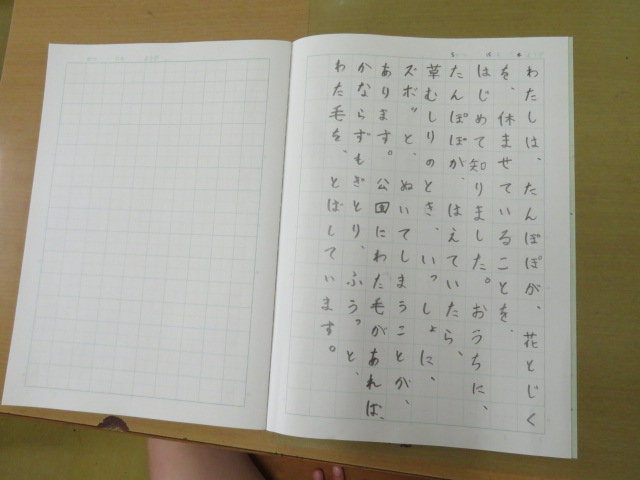 わたしは、たんぽぽが、花とじく
を、休ませていることを、
はじめて知りました。おうちに、
たんぽぽが、はえていたら、
草むしりのとき、いっしょに、
ズボッと、ぬいてしまうことが、
あります。公園にわた毛があれば、
かならずもぎとり、ふうっと、
わた毛を、とばしています。